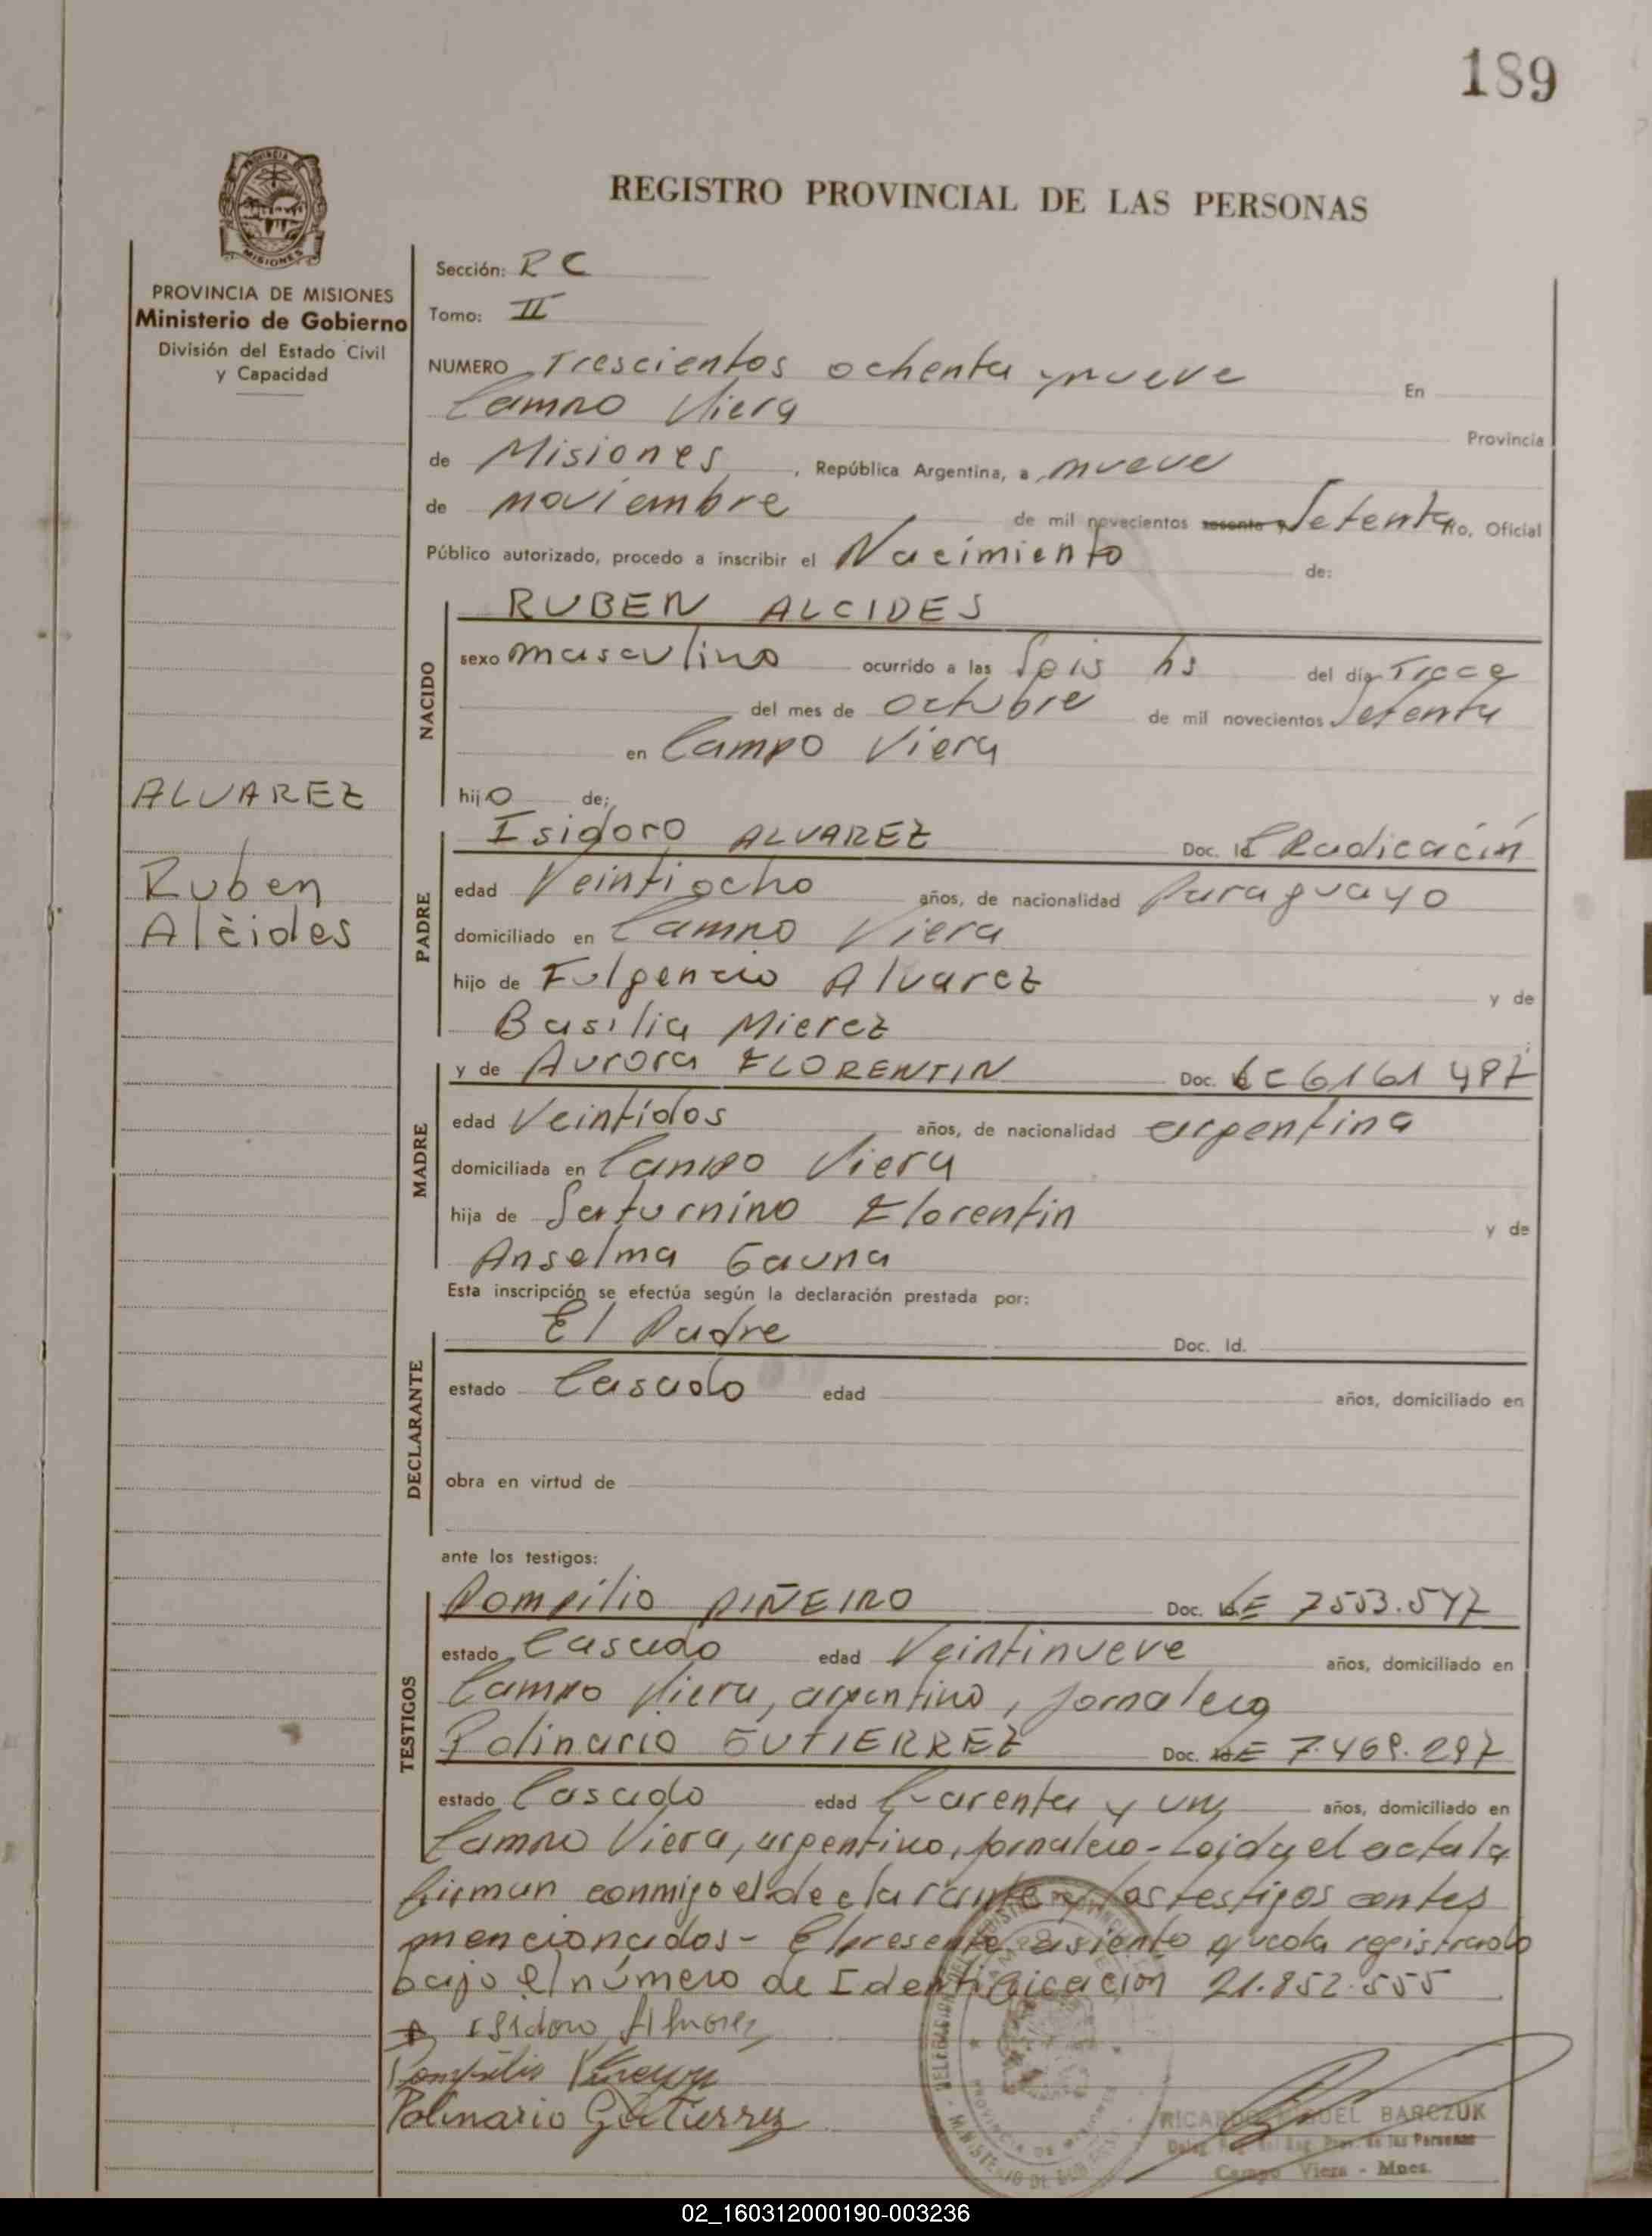 189
REGISTRO PROVINCIAL DE LAS PERSONAS
PROVINCIA DE MISIONES
MISIONES
PROVINCIA DE MISIONES
Ministerio de Gobierno
División del Estado Civil
y Capacidad
Sección: R C
Tomo: II
NUMERO Trescientos ochenta y nueve En
Campo Viera Provincia
de Misiones, República Argentina, a nueve
de noviembre de mil novecientos sesenta y Setenta no, Oficial
Público autorizado, procedo a inscribir el Nacimiento de:
NACIDO
RUBEN ALCIDES
sexo masculino ocurrido a las Seis hs del día Trece
del mes de octubre de mil novecientos Setenta
en Campo Viera
ALVAREZ
Ruben
Alcides
hijo de;
PADRE
Isidoro ALVAREZ Doc. Id C Radicación
edad Veintiocho años, de nacionalidad Paraguayo
domiciliado en Campo Viera
hijo de Fulgencio Alvarez y de
Basilia Mierez
MADRE
y de Aurora FLORENTIN Doc. LC 6161 487
edad Veintidos años, de nacionalidad argentina
domiciliada en Campo Viera
hija de Saturnino Florentin y de
Anselma Gauna
Esta inscripción se efectúa según la declaración prestada por:
DECLARANTE
El Padre Doc. Id.
estado Casado edad años, domiciliado en
obra en virtud de
ante los testigos:
TESTIGOS
Pompilio PIÑEIRO Doc. LE 7553.547
estado Casado edad Veintinueve años, domiciliado en
Campo Viera, argentino, jornalero
Polinario GUTIERREZ Doc. LE 7.469.297
estado Casado edad Cuarenta y un años, domiciliado en
Campo Viera, argentino, jornalero - Leida el acta la
firman conmigo el declarante y los testigos antes
mencionados - El presente asiento queda registrado
bajo el número de Identificacion 21.852.555
Isidoro Alvarez
Pompilio Piñeiro
Polinario Gutierrez
RICARDO MIGUEL BARCZUK
Deleg. Reg. del Reg. Prov. de las Personas
Campo Viera - Mnes.
02_160312000190-003236